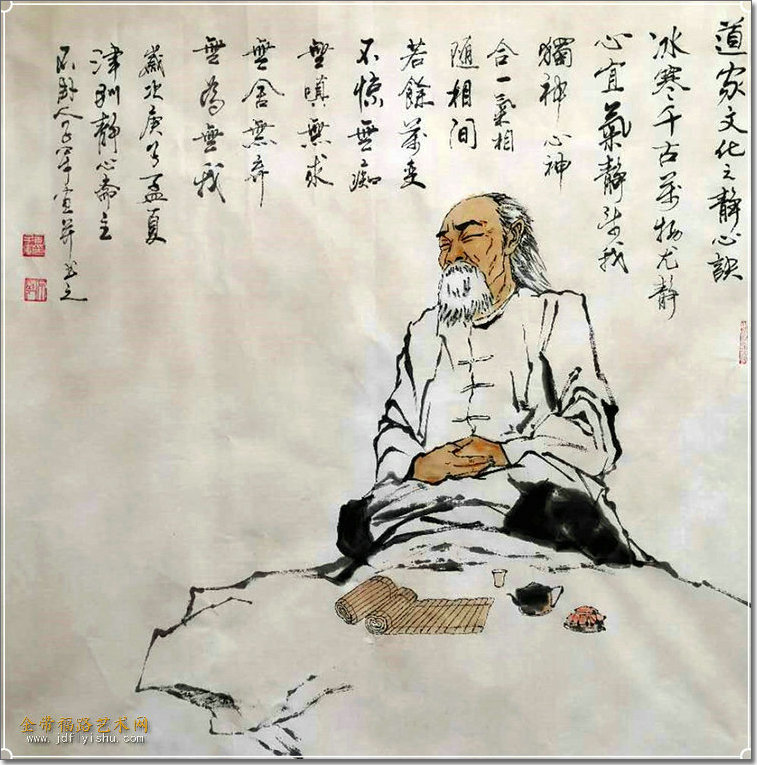 道家文化之静心訣
冰寒千古萬物尤静
心宜氣静望我
獨神心神
合一氣相
随相间
若餘萬变
不惊無痴
無嗔無求
無舍無弃
無為無我
歲次庚子孟夏
津静心斋主
不人子军画并书之
金帝福路艺术网
www.jdflyishu.com